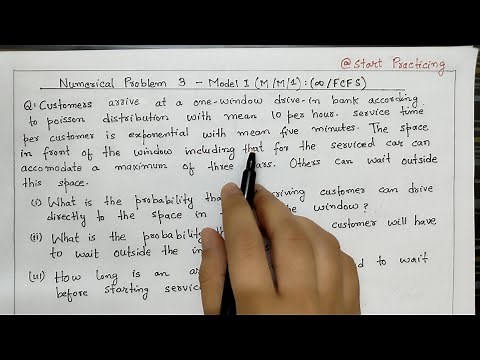 @Start Practicing
Numerical Problem 3 - Model I (M/M/1):(∞/FCFS)
Q: Customers arrive at a one-window drive-in bank according
to poisson distribution with mean 10 per hour. service time
per customer is exponential with mean five minutes. The space
in front of the window including that for the serviced car can
accomodate a maximum of three cars. Others can wait outside
this space.
(i) What is the probability that riving customer can drive
directly to the space in the window?
(ii) What is the probability customer will have
to wait outside the in
(iii) How long is an ar d to wait
before starting servic